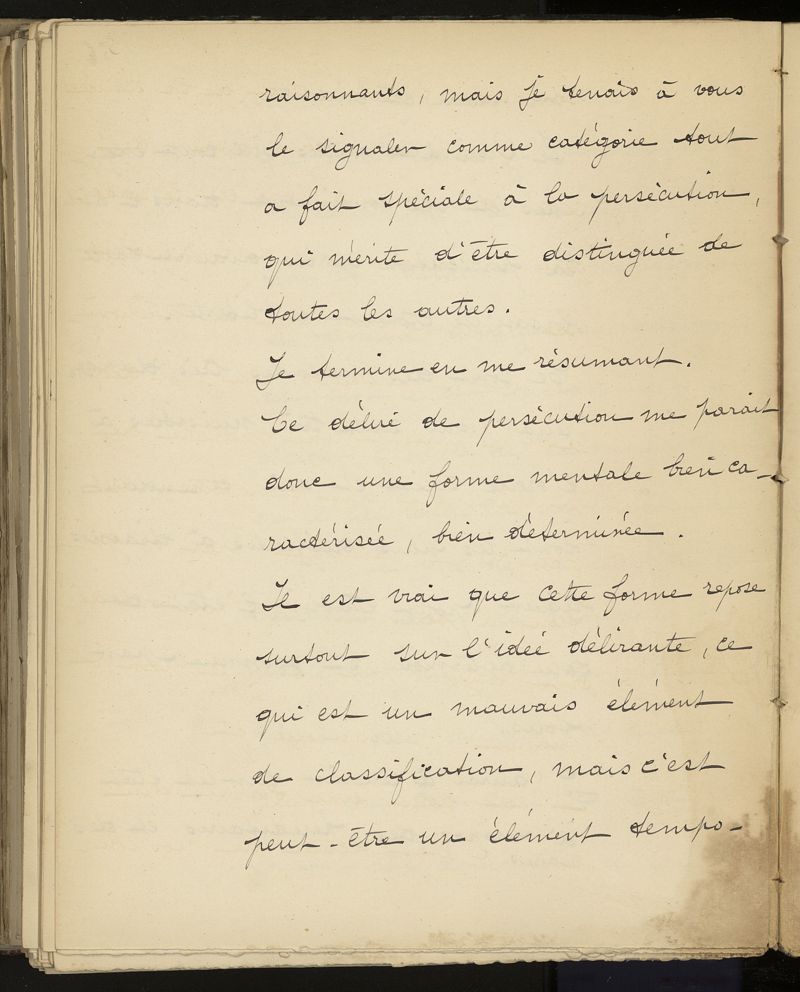 raisonnants, mais je tenais à vous
le signaler comme catégorie tout
a fait spéciale à la persécution,
qui mérite d'être distinguée de
toutes les autres.
Je termine en me résumant.
Ce délire de persécution me parait
donc une forme mentale bien ca-
ractérisée, bien déterminée.
Il est vrai que cette forme repose
surtout sur l'idée délirante, ce
qui est un mauvais élément
de classification, mais c'est
peut-être un élément tempo-